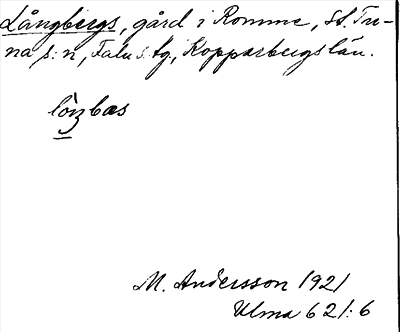 Långbergs, gård i Romme, St. Tu-
na s:n, Falu s. tg., Kopparbergs län.
M. Andersson 1921
Ulma 621:6